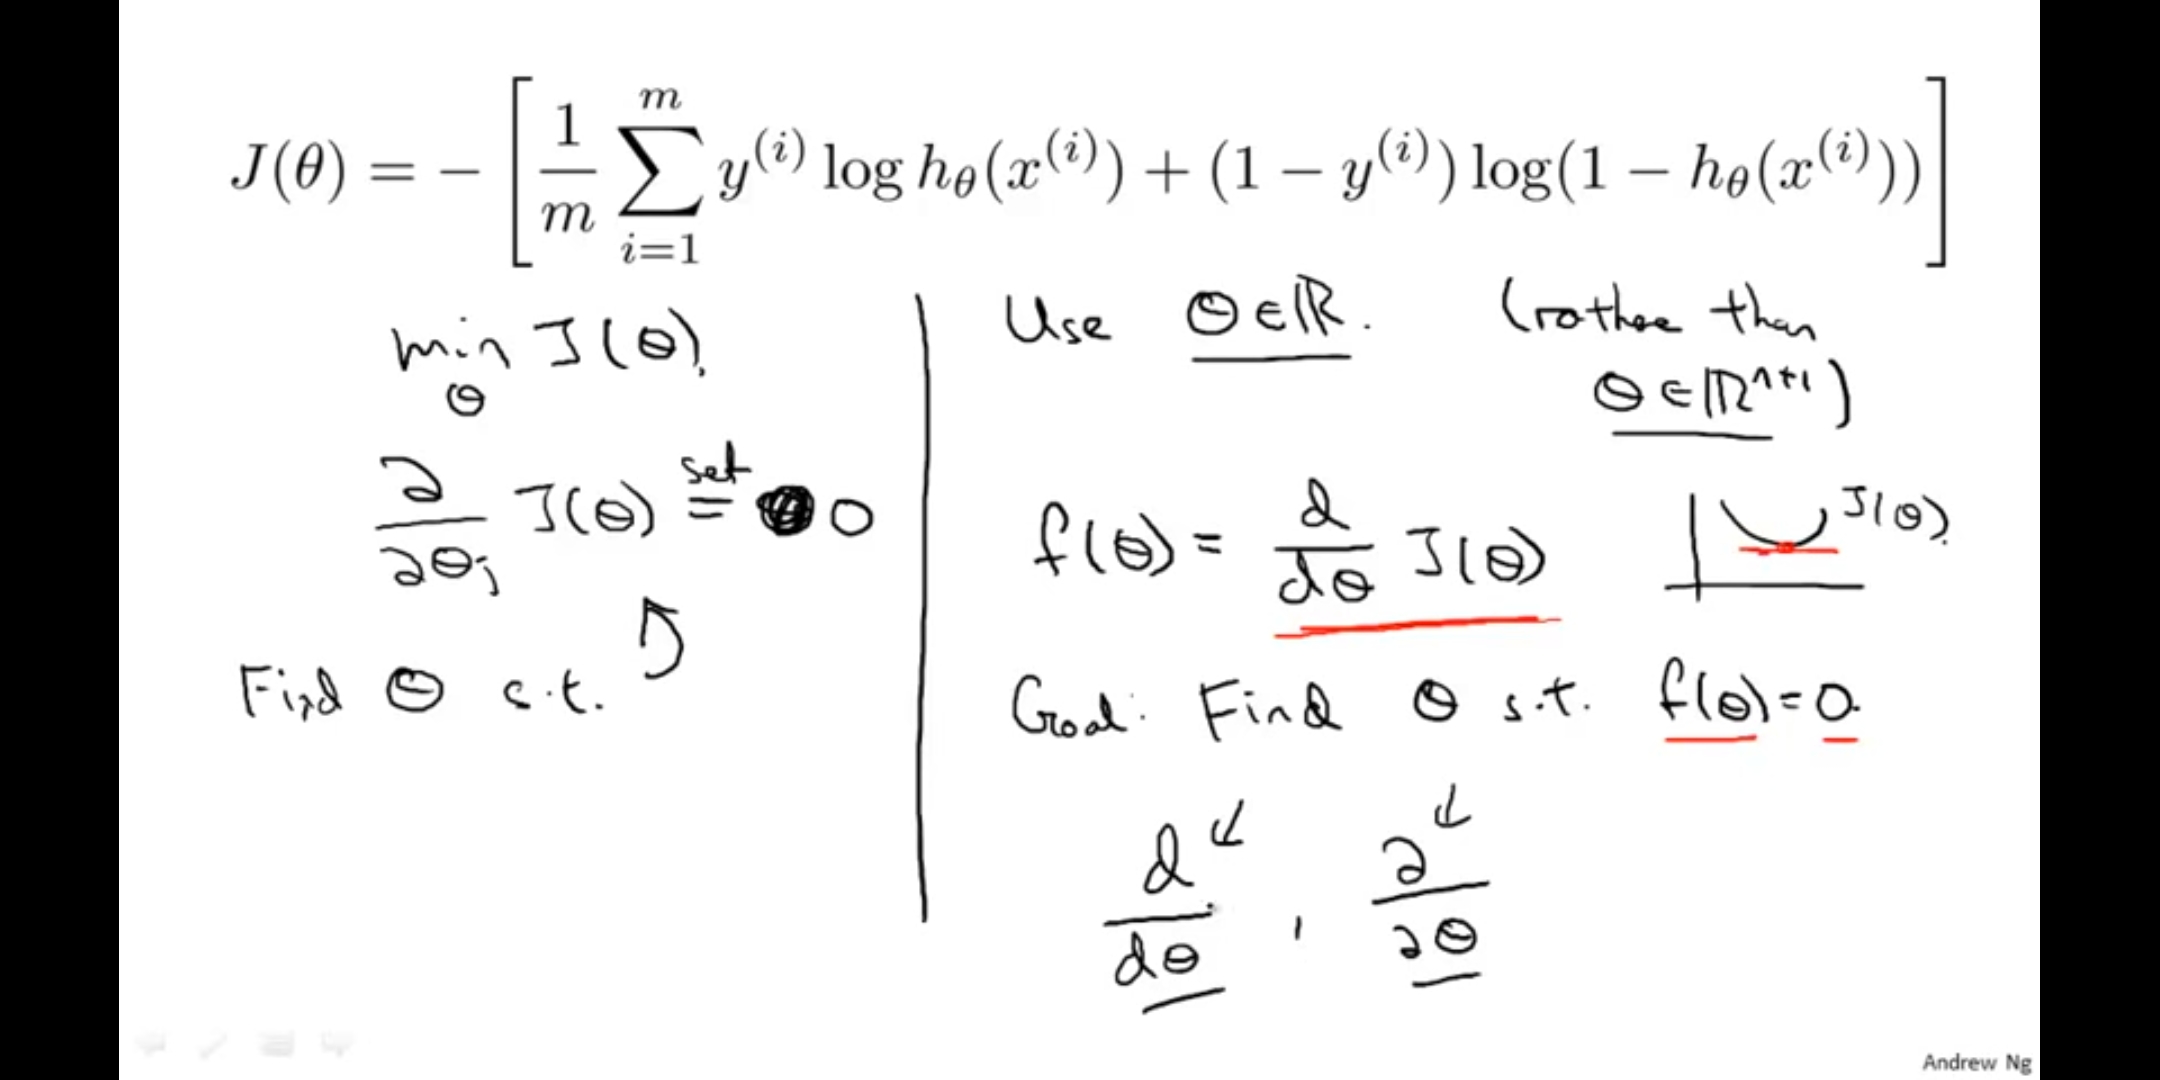 J(θ) = − [ 1/m ∑_{i=1}^{m} y^{(i)} log h_θ(x^{(i)}) + (1 − y^{(i)}) log(1 − h_θ(x^{(i)})) ]
min_θ J(θ).
∂/∂θ_j J(θ) set= 0
Find θ s.t.
Use θ ∈ ℝ. (rather than
θ ∈ ℝ^{n+1})
f(θ) = d/dθ J(θ)
J(θ).
Goal: Find θ s.t. f(θ) = 0.
d/dθ , ∂/∂θ
Andrew Ng